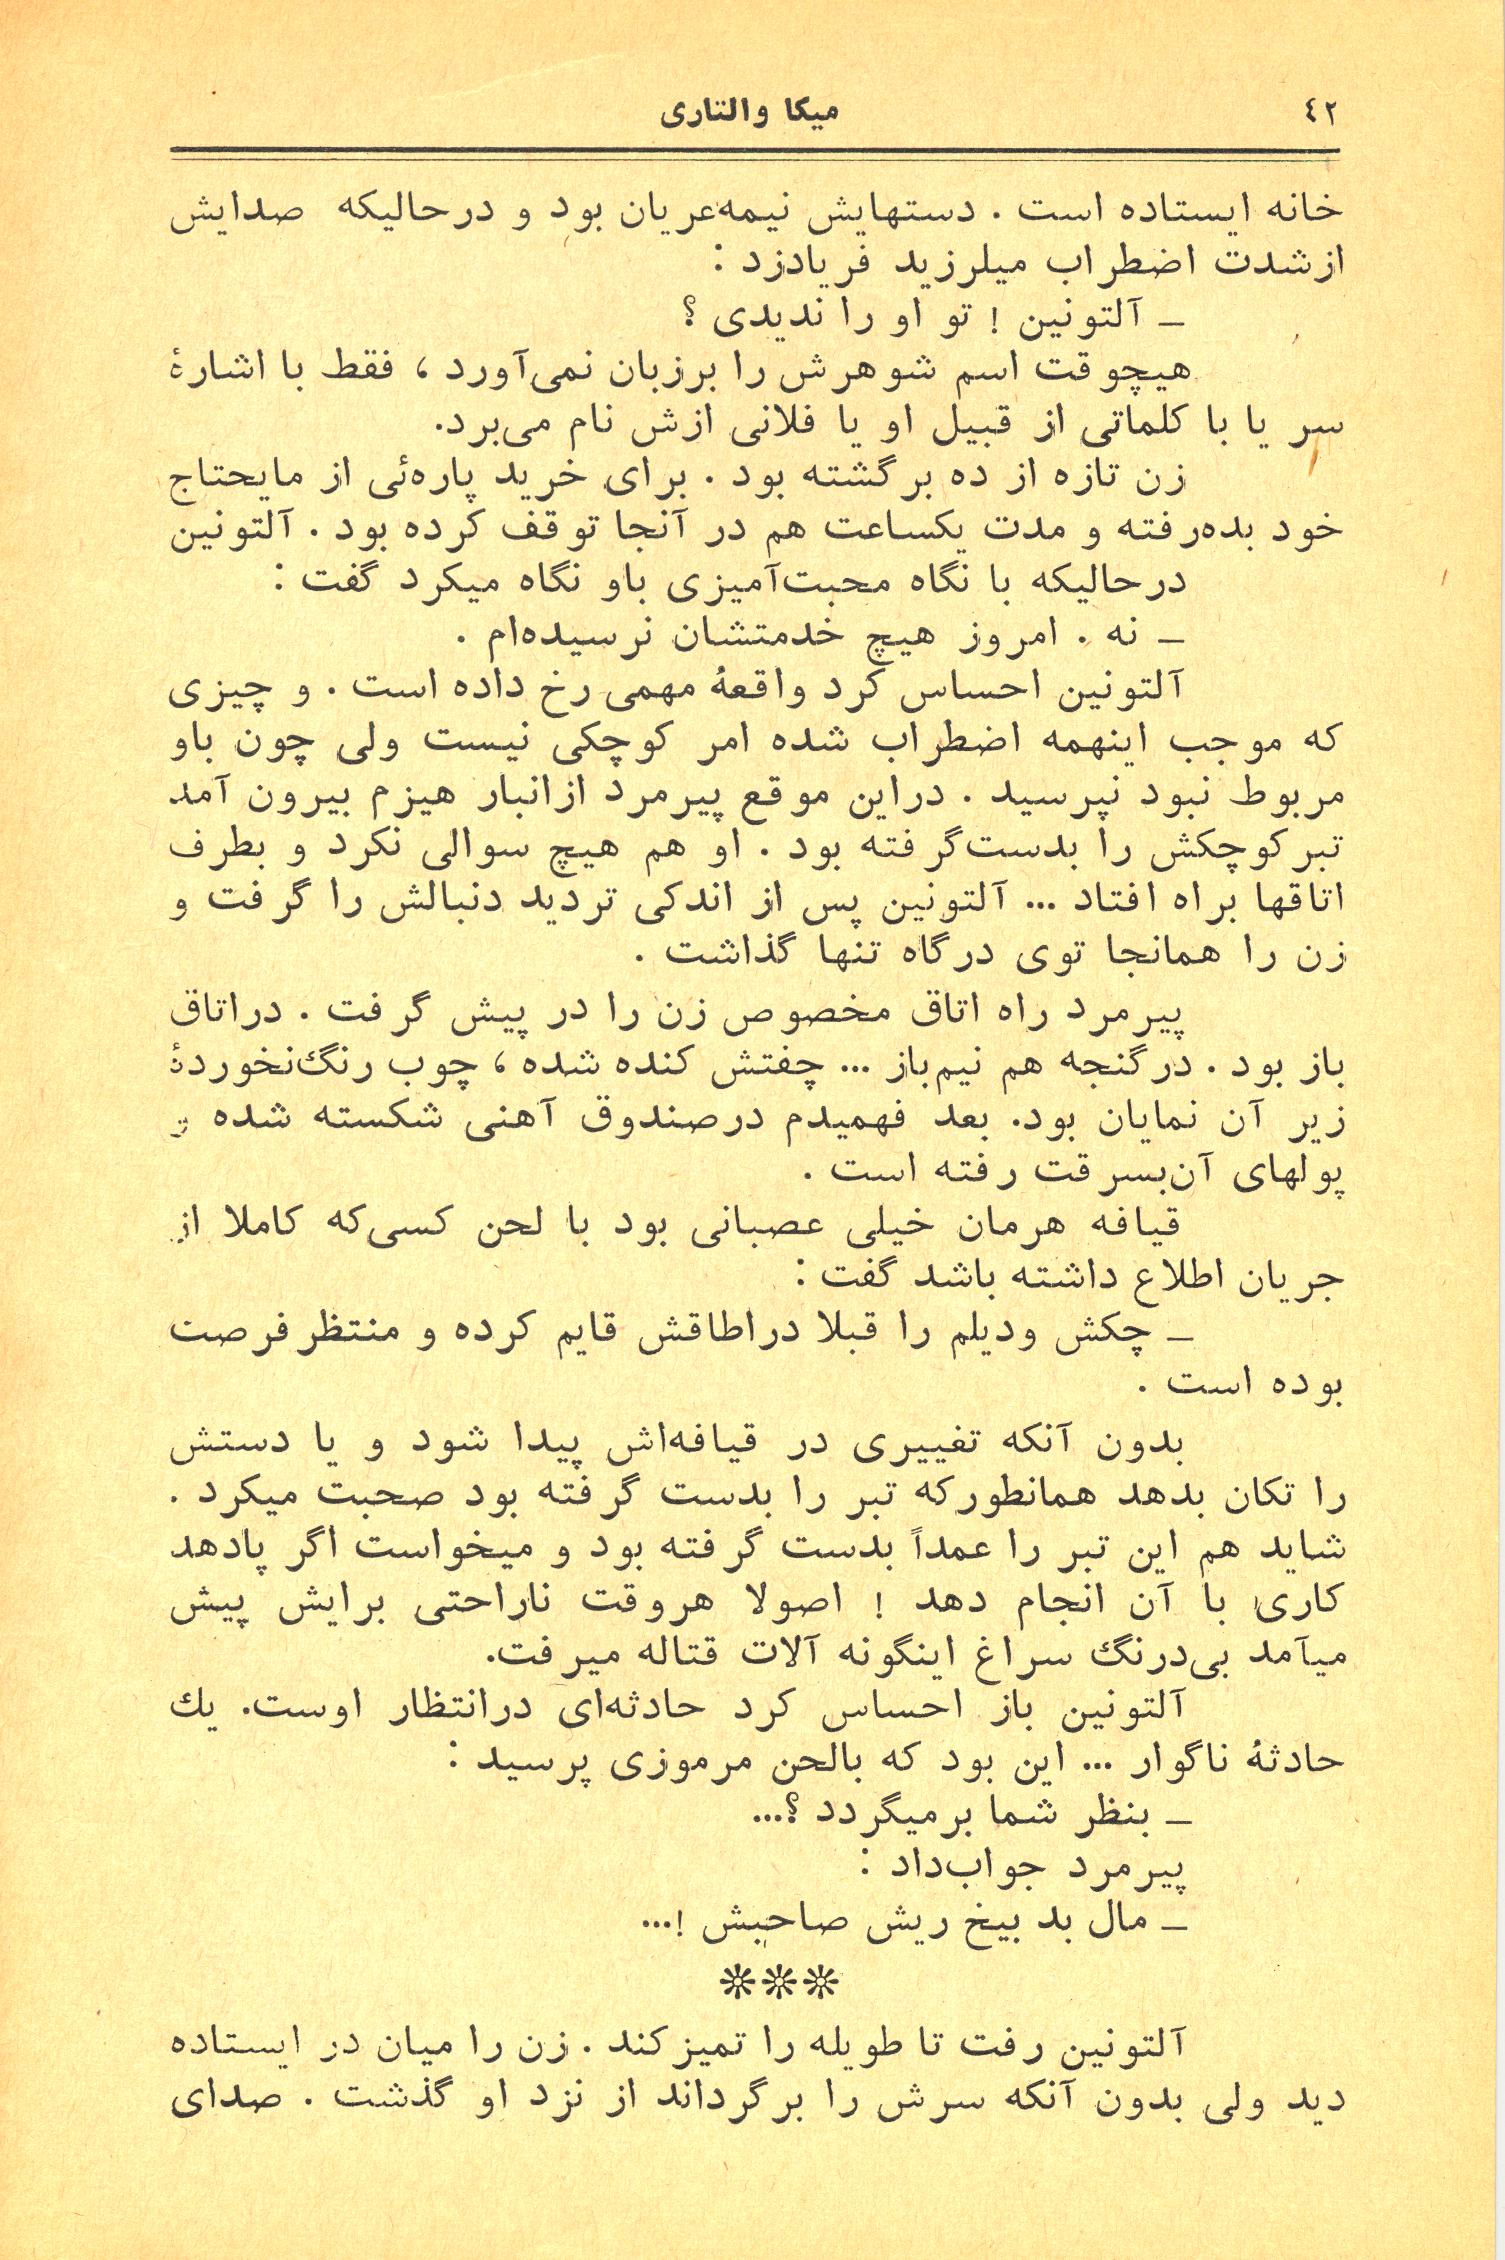 ٤٢
میکا والتاری
خانه ایستاده است . دستهایش نیمه‌عریان بود و درحالیکه صدایش
ازشدت اضطراب میلرزید فریادزد :
ـ آلتونین ! تو او را ندیدی ؟
هیچوقت اسم شوهرش را برزبان نمی‌آورد ، فقط با اشارهٔ
سر یا با کلماتی از قبیل او یا فلانی ازش نام می‌برد.
زن تازه از ده برگشته بود . برای خرید پاره‌ئی از مایحتاج
خود بده‌رفته و مدت یکساعت هم در آنجا توقف کرده بود . آلتونین
درحالیکه با نگاه محبت‌آمیزی باو نگاه میکرد گفت :
ـ نه . امروز هیچ خدمتشان نرسیده‌ام .
آلتونین احساس کرد واقعهٔ مهمی رخ داده است . و چیزی
که موجب اینهمه اضطراب شده امر کوچکی نیست ولی چون باو
مربوط نبود نپرسید . دراین موقع پیرمرد ازانبار هیزم بیرون آمد
تبرکوچکش را بدست‌گرفته بود . او هم هیچ سوالی نکرد و بطرف
اتاقها براه افتاد ... آلتونین پس از اندکی تردید دنبالش را گرفت و
زن را همانجا توی درگاه تنها گذاشت .
پیرمرد راه اتاق مخصوص زن را در پیش گرفت . دراتاق
باز بود . درگنجه هم نیم‌باز ... چفتش کنده شده ، چوب رنگ‌نخوردهٔ
زیر آن نمایان بود. بعد فهمیدم درصندوق آهنی شکسته شده و
پولهای آن‌بسرقت رفته است .
قیافه هرمان خیلی عصبانی بود با لحن کسی‌که کاملا از
جریان اطلاع داشته باشد گفت :
ـ چکش ودیلم را قبلا دراطاقش قایم کرده و منتظرفرصت
بوده است .
بدون آنکه تغییری در قیافه‌اش پیدا شود و یا دستش
را تکان بدهد همانطورکه تبر را بدست گرفته بود صحبت میکرد .
شاید هم این تبر را عمداً بدست گرفته بود و میخواست اگر پادهد
کاری با آن انجام دهد ! اصولا هروقت ناراحتی برایش پیش
میآمد بی‌درنگ سراغ اینگونه آلات قتاله میرفت.
آلتونین باز احساس کرد حادثه‌ای درانتظار اوست. یك
حادثهٔ ناگوار ... این بود که بالحن مرموزی پرسید :
ـ بنظر شما برمیگردد ؟...
پیرمرد جواب‌داد :
ـ مال بد بیخ ریش صاحبش !...
※※※
آلتونین رفت تا طویله را تمیزکند . زن را میان در ایستاده
دید ولی بدون آنکه سرش را برگرداند از نزد او گذشت . صدای